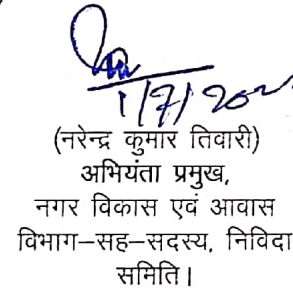 1/7/202
(नरेन्द्र कुमार तिवारी)
अभियंता प्रमुख,
नगर विकास एवं आवास
विभाग–सह–सदस्य, निविदा
समिति।